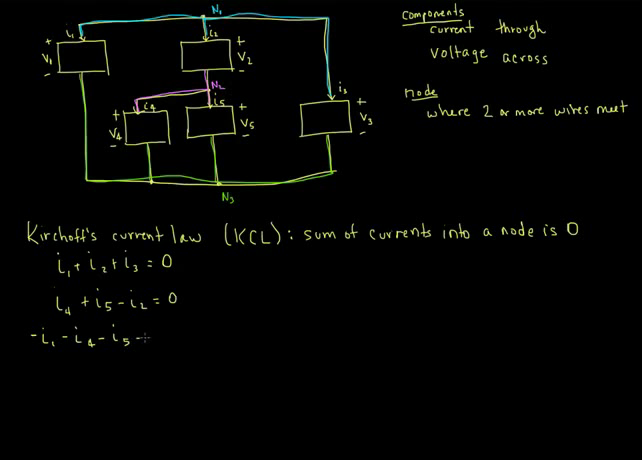 N₁
i₁
i₂
+ V₁ -
+ V₂ -
N₂
i₃
i₄
i₅
+ V₄ -
+ V₅ -
+ V₃ -
N₃
Components
current through
Voltage across
node
where 2 or more wires meet
Kirchoff's current law (KCL): sum of currents into a node is 0
i₁ + i₂ + i₃ = 0
i₄ + i₅ - i₂ = 0
-i₁ - i₄ - i₅ -